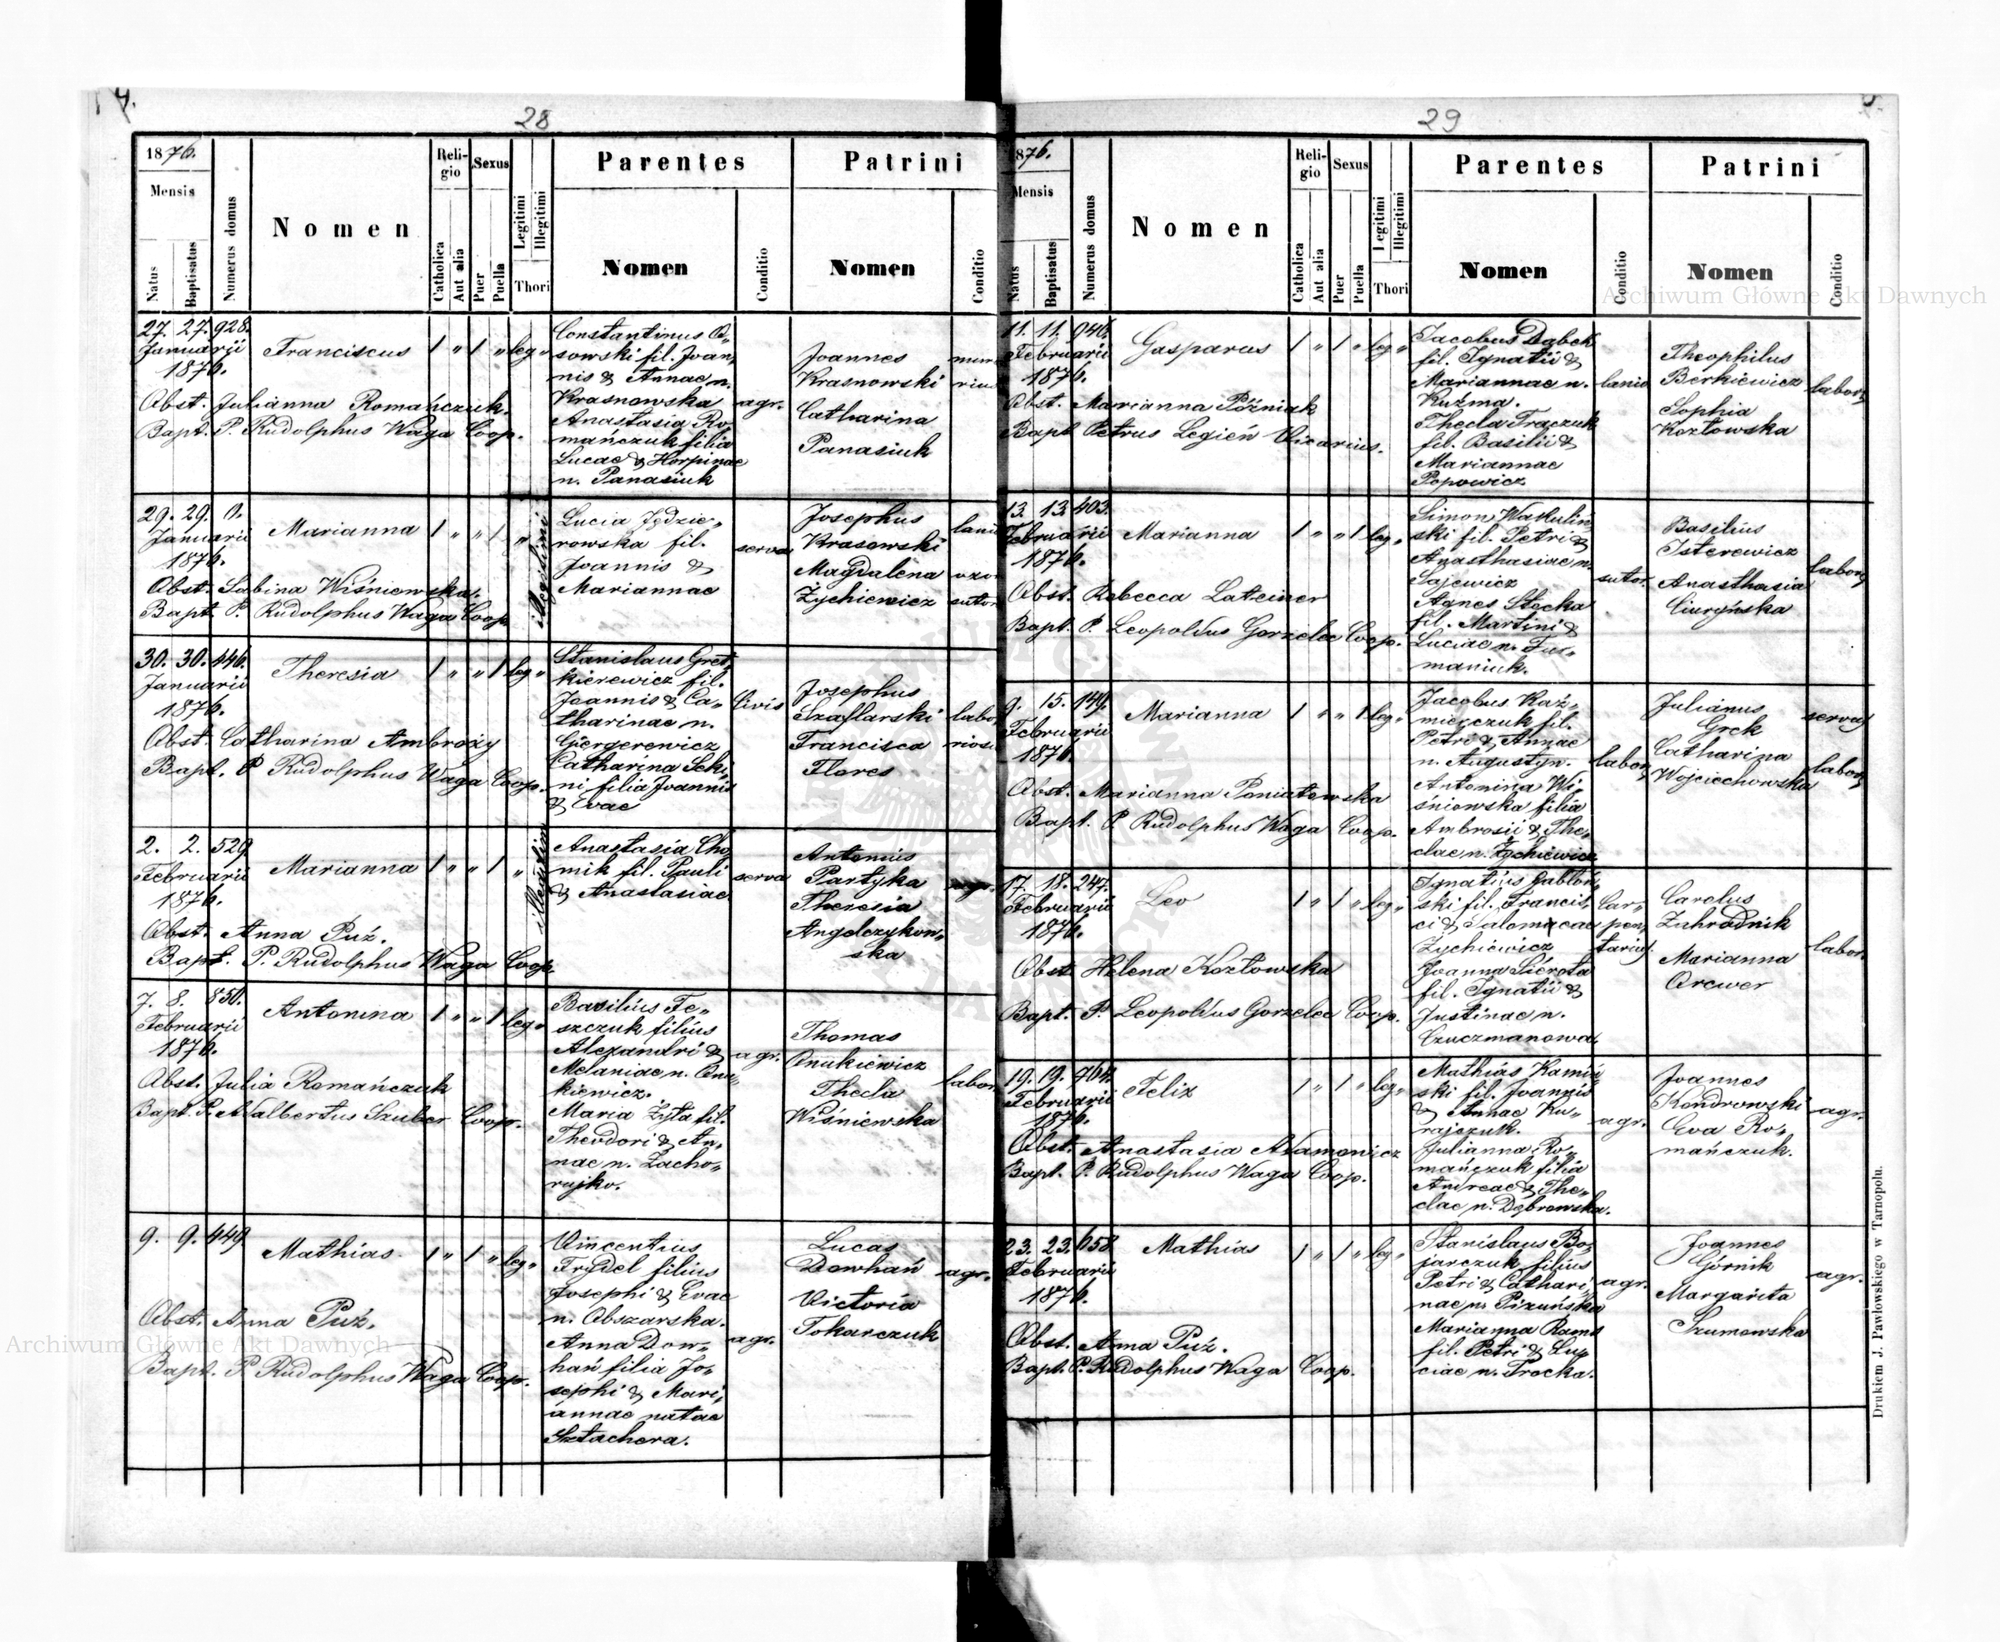 4.
28
1876.
Mensis
Natus
Baptisatus
Numerus domus
Nomen
Religio
Catholica
Aut alia
Sexus
Puer
Puella
Legitimi
Illegitimi
Thori
Parentes
Nomen
Conditio
Patrini
Nomen
Conditio
27. 27. 928.
Januarii
1876.
Franciscus
1 „ 1 „ leg „
Constantinus O-
sowski fil. Joan-
nis & Annae n.
Krasnowska
Anastasia Ro-
mańczuk filia
Lucae & Horpinae
n. Panasiuk
agr.
Joannes
Krasnowski
Catharina
Panasiuk
Obst. Julianna Romańczuk.
Bapt. P. Rudolphus Waga Coop.
29. 29. 0.
Januarii
1876.
Marianna
1 „ „ 1 „ illegitimi
Lucia Jędzie-
rowska fil.
Joannis &
Mariannae
serva
Josephus
Krasowski
Magdalena
Zychiewicz
Obst. Sabina Wiśniewska.
Bapt. P. Rudolphus Waga Coop.
30. 30. 446.
Januarii
1876.
Theresia
1 „ „ 1 leg „
Stanislaus Gret-
kierewicz fil.
Joannis & Ca-
tharinae n.
Giergerewicz
Catharina Seki-
ni filia Joannis
& Evae
Civis
Josephus
Szaflarski
Francisca
Flores
Obst. Catharina Ambroży
Bapt. P. Rudolphus Waga Coop.
2. 2. 529
Februarii
1876.
Marianna
1 „ „ 1 „ illegitim
Anastasia Cho-
mik fil. Pauli
& Anastasiae
serva
Antonius
Partyka
Theresia
Angelczykow-
ska
agr.
Obst. Anna Puź.
Bapt. P. Rudolphus Waga Coop.
7. 8. 850.
Februarii
1876.
Antonina
1 „ „ 1 leg „
Basilius Te-
szczuk filius
Alexandri &
Melaniae n. Onu-
kiewicz.
Maria Zyta fil.
Theodori & An-
nae n. Zacho-
rujko.
agr.
Thomas
Onukiewicz
Thecla
Wiśniewska
labor.
Obst. Julia Romańczuk
Bapt. P. Adalbertus Szuber Coop.
9. 9. 449
Mathias
1 „ 1 „ leg „
Vincentius
Frydel filius
Josephi & Evae
n. Obszarska.
Anna Dow-
hań filia Jo-
sephi & Mari-
annae natae
Sztachera.
agr.
Lucas
Dowhań
Victoria
Tokarczuk
agr.
Obst. Anna Puź.
Bapt. P. Rudolphus Waga Coop.
29
1876.
Mensis
Natus
Baptisatus
Numerus domus
Nomen
Religio
Catholica
Aut alia
Sexus
Puer
Puella
Legitimi
Illegitimi
Thori
Parentes
Nomen
Conditio
Patrini
Nomen
Conditio
11. 11. 946.
Februarii
1876.
Gasparus
1 „ 1 „ leg „
Jacobus Dąbek
fil. Ignatii &
Mariannae n.
Kuźma.
Thecla Traczuk
fil. Basilii &
Mariannae
Popowicz
lanio
Theophilus
Berkiewicz
Sophia
Kozłowska
labor.
Obst. Marianna Późniak
Bapt. Petrus Legień Vicarius.
13. 13. 403.
Februarii
1876.
Marianna
1 „ „ 1 leg „
Simon Wakuliń-
ski fil. Petri &
Anasthasiae n.
Sajewicz
Agnes Stecka
fil. Martini &
Luciae n. Fur-
maniuk.
sutor.
Basilius
Isterewicz
Anasthasia
Ciuryńska
labor.
Obst. Rebecca Lateiner
Bapt. P. Leopoldus Gorzelec Coop.
9. 15. 149.
Februarii
1876.
Marianna
1 „ „ 1 leg „
Jacobus Kaź-
mierczuk fil.
Petri & Annae
n. Augustyn.
Antonina Wi-
śniowska filia
Ambrosii & The-
clae n. Zychiewicz
labor.
Julianus
Grek
Catharina
Wojciechowska
servus
labor.
Obst. Marianna Poniatowska
Bapt. P. Rudolphus Waga Coop.
17. 18. 247.
Februarii
1876.
Leo
1 „ 1 „ leg „
Ignatius Jabłoń-
ski fil. Francis-
ci & Salomeae
Zychiewicz
Joanna Sierota
fil. Ignatii &
Justinae n.
Czuczmanowa.
Car-
pen-
tarius
Carolus
Zahradnik
Marianna
Orewer
labor.
Obst. Helena Kozłowska
Bapt. P. Leopoldus Gorzelec Coop.
19. 19. 764.
Februarii
1876.
Felix
1 „ 1 „ leg „
Mathias Kamiń-
ski fil. Joannis
& Annae Ku-
rajczuk.
Julianna Ro-
mańczuk filia
Andreae & The-
clae n. Dąbrowska.
agr.
Joannes
Kondrowski
Eva Ro-
mańczuk.
agr.
Obst. Anastasia Adamowicz
Bapt. P. Rudolphus Waga Coop.
23. 23. 658
Februarii
1876.
Mathias
1 „ 1 „ leg „
Stanislaus Bo-
jarczuk filius
Petri & Cathari-
nae n. Pizuńska
Marianna Rams
fil. Petri & Lu-
ciae n. Trocka.
agr.
Joannes
Górnik
Margarita
Szumowska
agr.
Obst. Anna Puź.
Bapt. P. Rudolphus Waga Coop.
Drukiem J. Pawłowskiego w Tarnopolu.
Archiwum Główne Akt Dawnych
Archiwum Główne Akt Dawnych